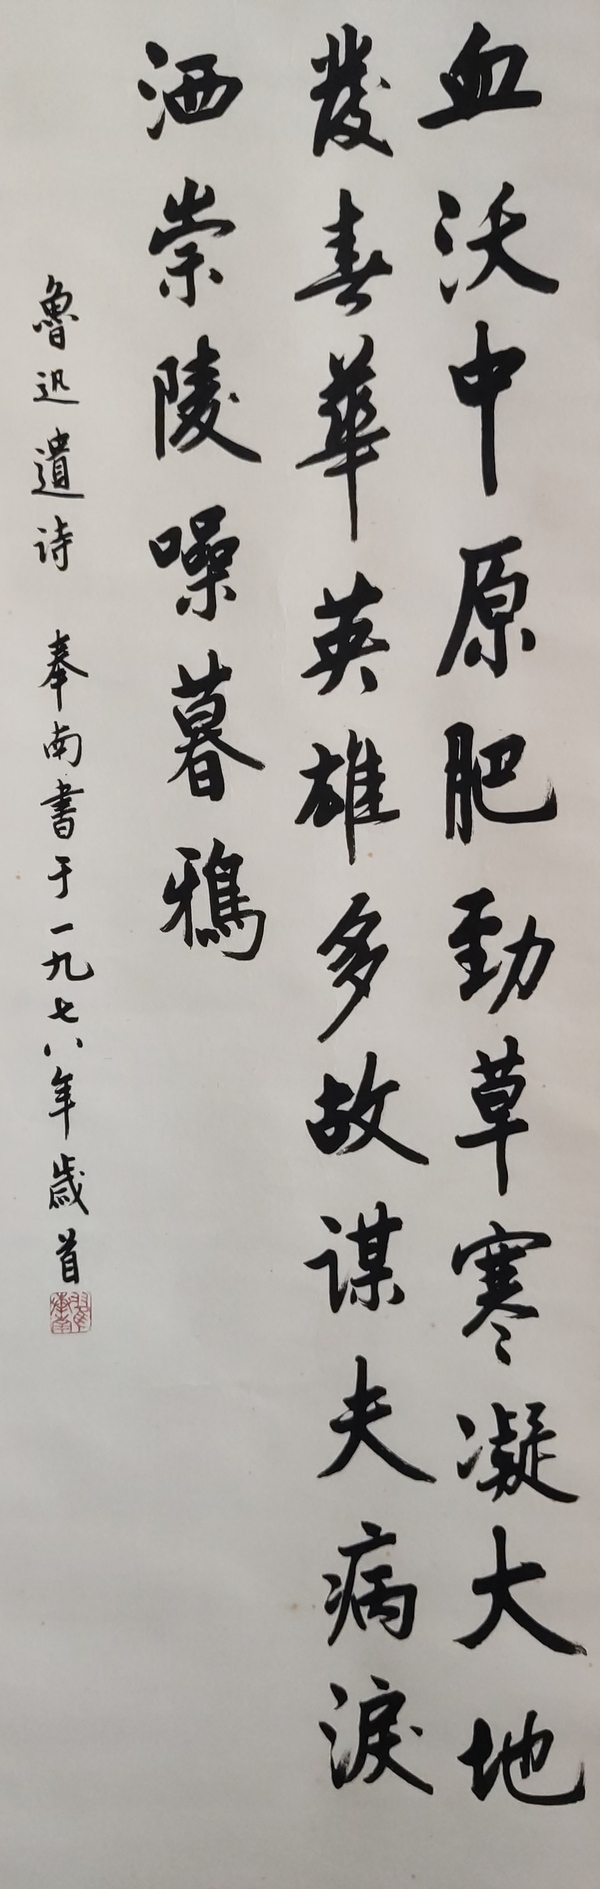 血沃中原肥劲草寒凝大地
發春華英雄多故谋夫病淚
洒崇陵噪暮鴉
魯迅遺诗 奉南書于一九七八年歲首